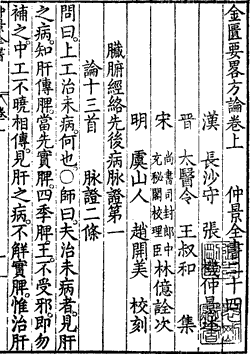 金匱要略方論卷上　仲景全書二十四
漢　長沙守　張　機仲景述
晉　太醫令　王叔和　集
宋　尚書司封郎中充秘閣校理臣　林億詮次
明　虞山人　趙開美　校刻
臟腑經絡先後病脉證第一
論十三首　脉證二條
問曰上工治未病何也○師曰夫治未病者見肝
之病知肝傳脾當先實脾四季脾王不受邪即勿
補之中工不曉相傳見肝之病不解實脾惟治肝